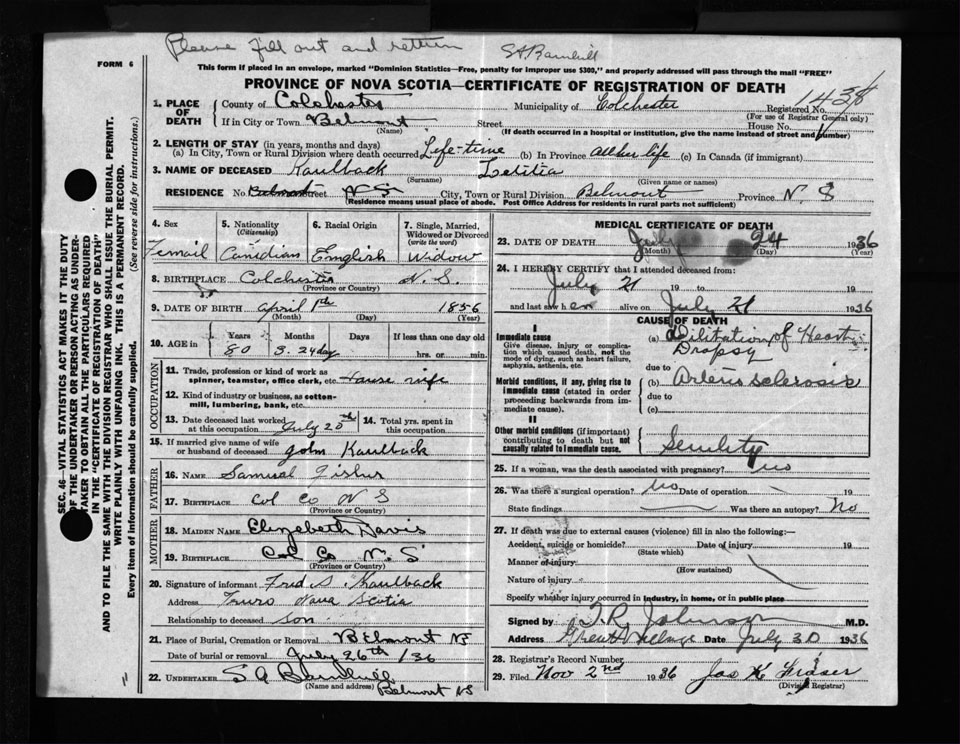 Please fill out and return S A Barnhill
FORM 6
This form if placed in an envelope, marked "Dominion Statistics—Free, penalty for improper use $300," and properly addressed will pass through the mail "FREE"
PROVINCE OF NOVA SCOTIA—CERTIFICATE OF REGISTRATION OF DEATH
1. PLACE OF DEATH
County of Colchester Municipality of Colchester Registered No.
(For use of Registrar General only)
If in City or Town Belmont Street House No.
(Name) (If death occurred in a hospital or institution, give the name instead of street and number)
2. LENGTH OF STAY (in years, months and days)
(a) In City, Town or Rural Division where death occurred Life-time (b) In Province all her life (c) In Canada (if immigrant)
3. NAME OF DECEASED Kaulback Letitia
(Surname) (Given name or names)
RESIDENCE No. Belmont Street N S City, Town or Rural Division Belmont Province N. S
(Residence means usual place of abode. Post Office Address for residents in rural parts not sufficient)
4. Sex 5. Nationality 6. Racial Origin 7. Single, Married, Widowed or Divorced
(Citizenship) (write the word)
Femail Canidian Emglish Widow
8. BIRTHPLACE Colchester N. S.
(Province or Country)
9. DATE OF BIRTH April 1th 1856
(Month) (Day) (Year)
10. AGE in Years Months Days If less than one day old
80 3. 24 day hrs. or min.
OCCUPATION
11. Trade, profession or kind of work as spinner, teamster, office clerk, etc. House wife
12. Kind of industry or business, as cotton-mill, lumbering, bank, etc.
13. Date deceased last worked at this occupation July 20th 14. Total yrs. spent in this occupation
15. If married give name of wife or husband of deceased John Kaulback
FATHER
16. NAME Samual Fisher
17. BIRTHPLACE Col Co N S
(Province or Country)
MOTHER
18. MAIDEN NAME Elizabeth Davis
19. BIRTHPLACE Col Co N. S
(Province or Country)
20. Signature of informant Fred S. Kaulback
Address Truro Nova Scotia
Relationship to deceased son
21. Place of Burial, Cremation or Removal Belmont NS
Date of burial or removal July 26th /36
22. UNDERTAKER S A Barnhill
(Name and address) Belmont NS
MEDICAL CERTIFICATE OF DEATH
23. DATE OF DEATH July 24 1936
(Month) (Day) (Year)
24. I HEREBY CERTIFY that I attended deceased from
July 21 19 to 19
and last saw her alive on July 21 1936
CAUSE OF DEATH
I
Immediate cause
Give disease, injury or complication which caused death, not the mode of dying, such as heart failure, asphyxia, asthenia, etc.
(a) Dilitation of Heart
Dropsy
due to
Morbid conditions, if any, giving rise to immediate cause (stated in order proceeding backwards from immediate cause).
(b) Arterio sclerosis
due to
(c)
II
Other morbid conditions (if important) contributing to death but not causally related to immediate cause.
Senility
25. If a woman, was the death associated with pregnancy? no
26. Was there a surgical operation? No Date of operation 19
State findings Was there an autopsy? No
27. If death was due to external causes (violence) fill in also the following:—
Accident, suicide or homicide? Date of injury 19
(State which)
Manner of injury
(How sustained)
Nature of injury
Specify whether injury occurred in industry, in home, or in public place
Signed by T. R. Johnson M.D.
Address Great Village Date July 30 1936
28. Registrar's Record Number
29. Filed Nov 2nd 1936 Jas K Fraser
(Division Registrar)
SEC. 46—VITAL STATISTICS ACT MAKES IT THE DUTY
OF THE UNDERTAKER OR PERSON ACTING AS UNDER-
TAKER TO OBTAIN ALL THE PARTICULARS REQUIRED
IN THE "CERTIFICATE OF REGISTRATION OF DEATH"
AND TO FILE THE SAME WITH THE DIVISION REGISTRAR WHO SHALL ISSUE THE BURIAL PERMIT.
WRITE PLAINLY WITH UNFADING INK. THIS IS A PERMANENT RECORD.
Every item of information should be carefully supplied. (See reverse side for instructions.)